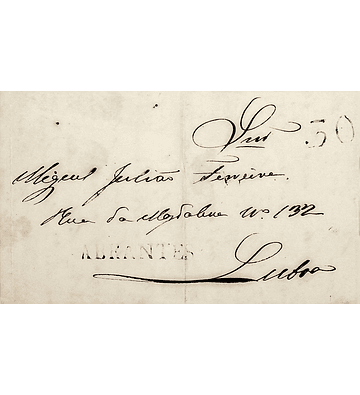 Snr 30
Miguel Julião Ferreira.
Rua da Magdalena No 132
ABRANTES
Lisboa